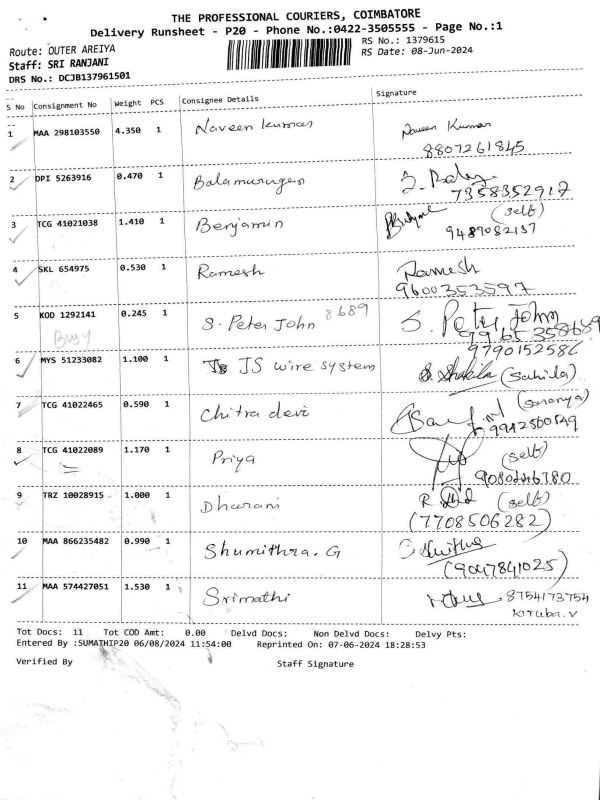 THE PROFESSIONAL COURIERS, COIMBATORE
Delivery Runsheet - P20 - Phone No.:0422-3505555 - Page No.:1
Route: OUTER AREIYA
RS No.: 1379615
Staff: SRI RANJANI
RS Date: 08-Jun-2024
DRS No.: DCJB137961501
S No Consignment No Weight PCS Consignee Details Signature
1 MAA 298103550 4.350 1 Naveen kumar Naveen Kumar
8807261845
2 DPI 5263916 0.470 1 Balamurugan
7358352917
3 TCG 41021038 1.410 1 Benjamin (self)
9489082137
4 SKL 654975 0.530 1 Ramesh Ramesh
9600353597
5 KOD 1292141 0.245 1 S. Peter John 8689 S. Peter John
Busy
9790152586
6 MYS 51233082 1.100 1 JS wire system S. Shakila (Sahila)
7 TCG 41022465 0.590 1 Chitra devi (Saranya)
8 TCG 41022089 1.170 1 Priya (self)
9 TRZ 10028915 1.000 1 Dharani R (self)
(7708506282)
10 MAA 866235482 0.990 1 Shumithra. G
(9047841025)
11 MAA 574427051 1.530 1 Srimathi 8754173754
Kiruba.v
Tot Docs: 11 Tot COD Amt: 0.00 Delvd Docs: Non Delvd Docs: Delvy Pts:
Entered By :SUMATHIP20 06/08/2024 11:54:00 Reprinted On: 07-06-2024 18:28:53
Verified By Staff Signature